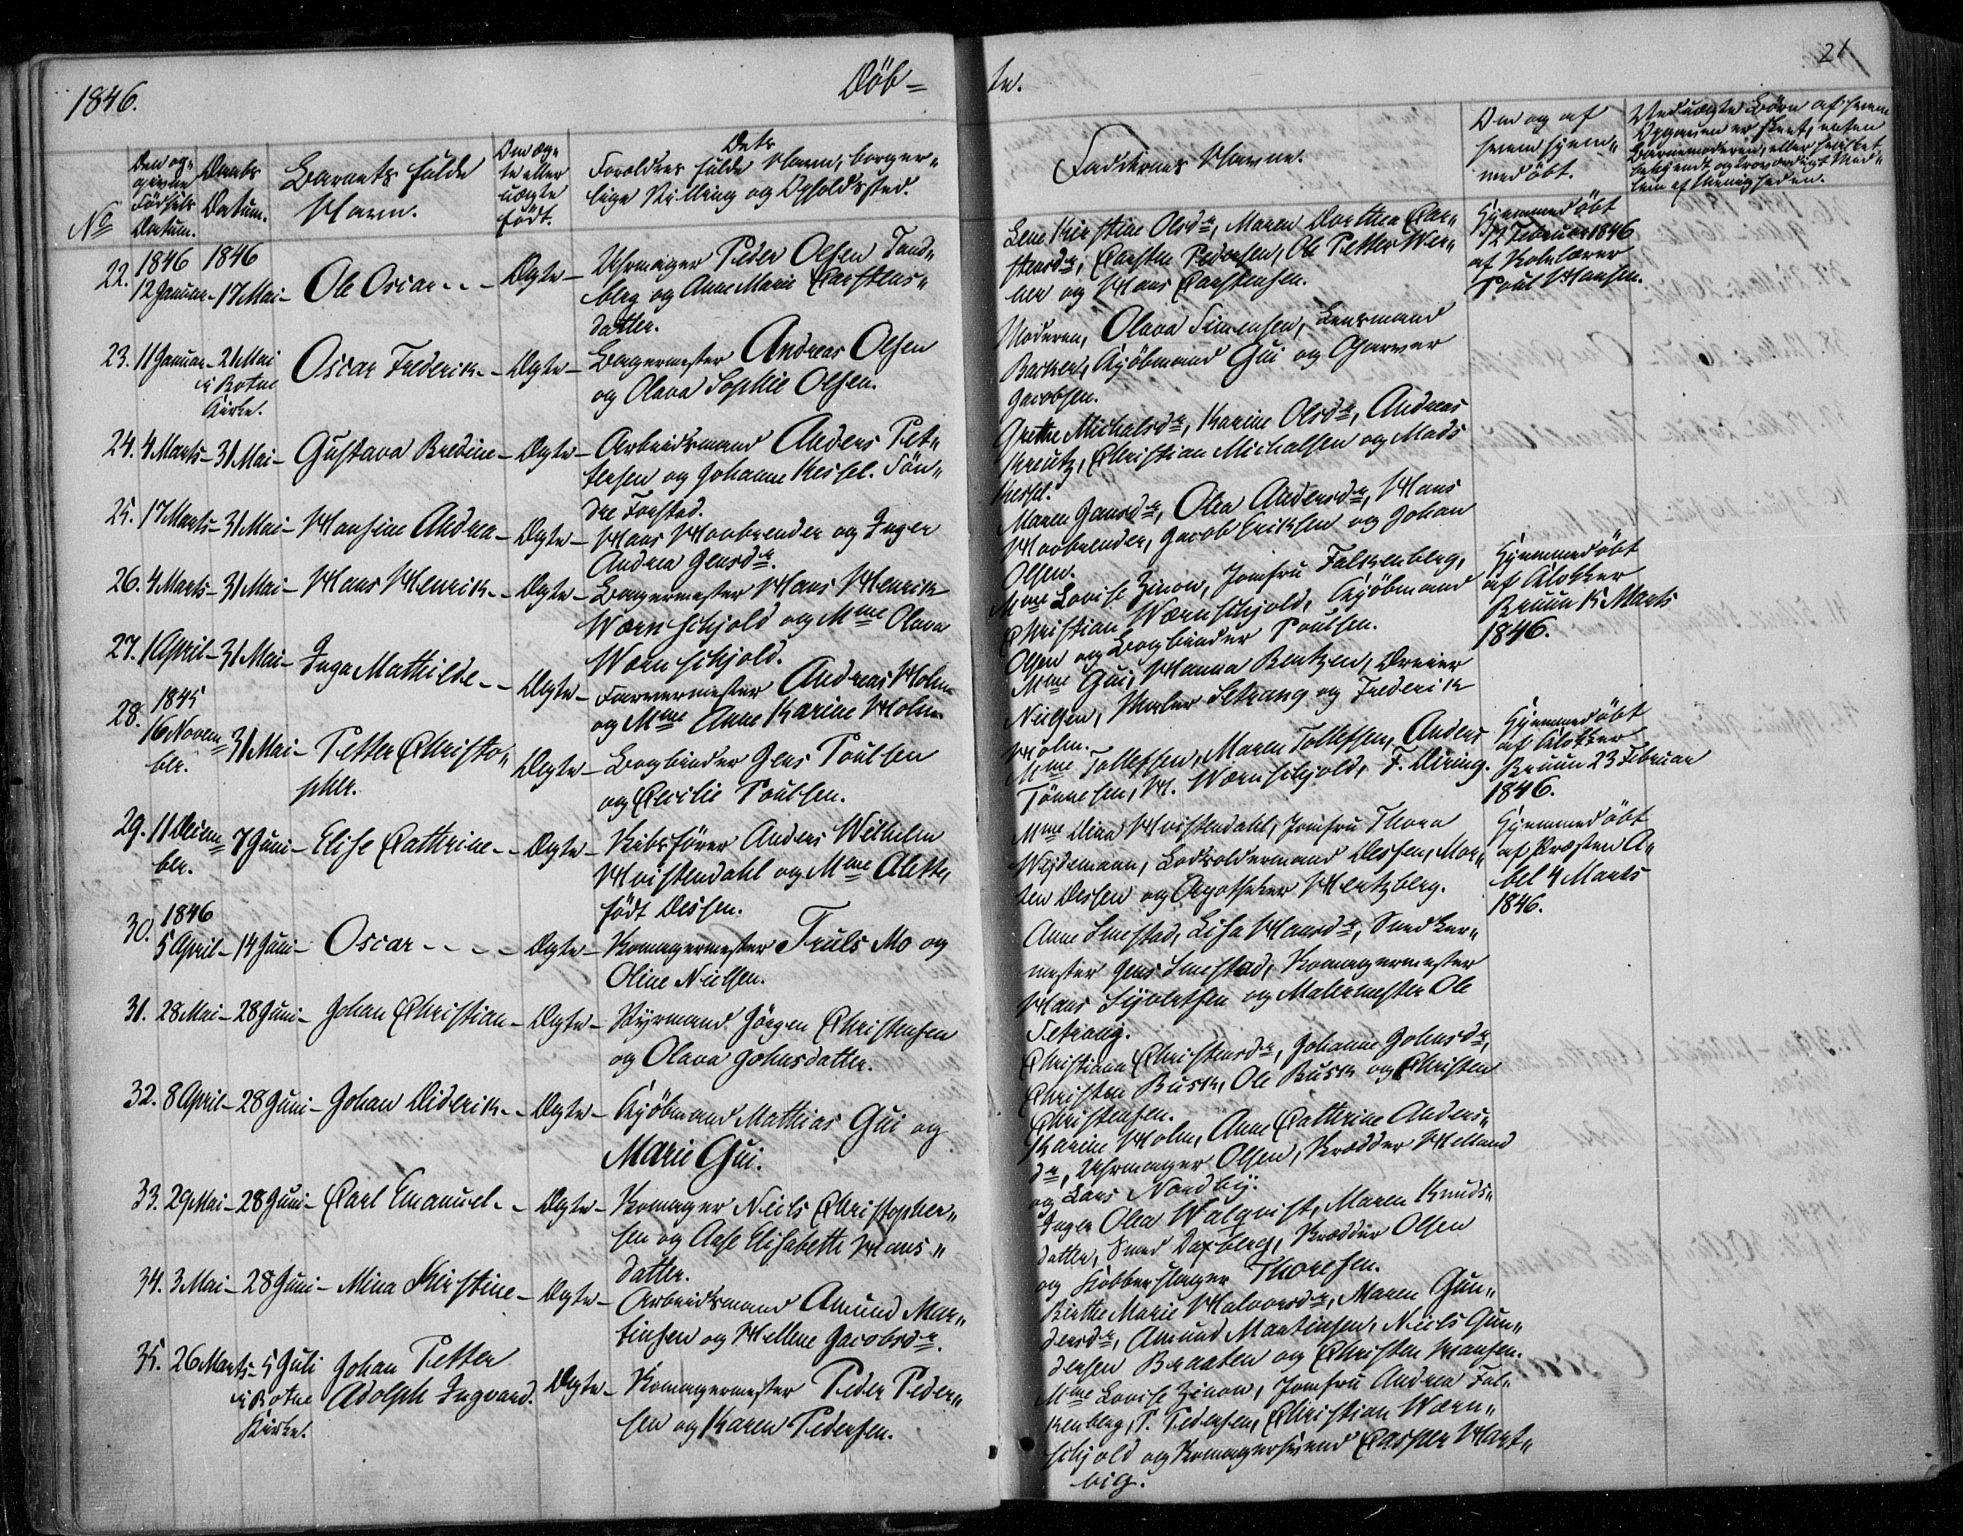 1846.
Döb=
te.
21
No
Den og-
givne
Födsels
Datum.
Daabs
Datum.
Barnets fulde
Navn.
Om æg-
te eller
uægte
födt.
Dets
Forældres fulde Navn, borger-
lige Stilling og Opholdssted.
Faddernes Navne.
Om og af
hvem hjem-
medöbt.
Ved uægte Börn af hvem
Opgaven er skeet, enten
Barnemoderen, eller hvilket
bekjendt og troværdigt Med-
lem af Menigheden.
22. 1846 12 Januar - 1846 17 Mai - Ole Oscar - - - Ægte -
Uhrmager Peder Olsen Tand-
berg og Anne Marie Carstens-
datter.
Lene Kirstine Olsdr, Maren Dorthea Car-
stensdr, Carsten Pedersen, Ole Petter Wer-
ner og Hans Carstensen.
Hjemmedöbt
12 Februar 1846
af Skolelærer
Poul Hansen.
23. 11 Januar - 21 Mai
i Botne
Kirke.
Oscar Frederik - - Ægte -
Bagermester Andreas Olsen
og Olava Sophie Olsen.
Moderen, Olava Simensen, Lensmand
Barker, Kjöbmand Gui og Garver
Jacobsen.
24. 4 Marts - 31 Mai - Gustava Bredine - Ægte -
Arbeidsmand Anders Pet-
tersen og Johanne Kessel. Sön-
dre Forstad.
Grethe Michalsdr, Karine Olsdr, Andreas
Kreutz, Christian Michalsen og Mads
Kessel.
25. 17 Marts - 31 Mai - Hansine Andrea - Ægte -
Hans Haabrender og Inger
Andrea Jensdr.
Maren Jansdr, Olea Andersdr, Hans
Haabrender, Jacob Eriksen og Johan
Olsen.
26. 4 Marts - 31 Mai - Hans Henrik - - Ægte -
Bagermester Hans Henrik
Wærnschjold og Mme Olava
Wærnschjold.
Mme Lovise Zinow, Jomfru Falkenberg,
Christian Wærnschjold, Kjöbmand
Olsen og Bogbinder Poulsen.
Hjemmedöbt
af Klokker
Bruun 15 Marts
1846.
27. 1 April - 31 Mai - Inga Mathilde - - Ægte -
Farvermester Andreas Holm
og Mme Anne Karine Holm
Mme Gui, Hanna Bentzen, Dreier
Nielsen, Maler Setrang og Frederik
Holm.
28. 1845
16 Novem-
ber. 31 Mai - Petter Christo-
pher. Ægte -
Bogbinder Jens Poulsen
og Cecilie Poulsen.
Mme Tollefsen, Maren Tollefsen, Anders
Tönnesen, H. Wærnschjold, F. Düring.
Hjemmedöbt
af Klokker
Bruun 23 Februar
1846.
29. 11 Decem-
ber. 7 Juni - Elise Cathrine - - Ægte -
Skibsförer Anders Wilhelm
Hvistendahl og Mme Alette
födt Dessen.
Mme Dina Hvistendahl, Jomfru Thora
Weidemann, Lodsoldermand Dessen, Mor-
ten Dessen og Apotheker Hertzberg.
Hjemmedöbt
af Provsten A-
bel 4 Marts
1846.
30. 1846
5 April - 14 Juni - Oscar - - - - Ægte -
Skomagermester Truls Mo og
Oline Nielsen.
Anne Smestad, Lisa Hansdr, Snedker-
mester Jens Smestad, Skomagermester
Hans Syvertsen og Malermester Ole
Setrang.
31. 28 Mai - 28 Juni - Johan Christian - Ægte -
Styrmand Jörgen Christensen
og Olava Johnsdatter.
Christiana Christensdr, Johanne Johnsdr,
Christen Busk, Ole Busk og Christen
Christensen.
32. 8 April - 28 Juni - Johan Diderik - - Ægte -
Kjöbmand Mathias Gui og
Marie Gui.
Karine Holm, Anne Cathrine Anders-
dr, Uhrmager Olsen, Skrædder Helland
og Lars Nordby.
33. 29 Mai - 28 Juni - Carl Emanuel - - Ægte -
Skomager Niels Christopher-
sen og Aase Elisabeth Hans-
datter.
Inger Olea Walqvist, Maren Knuds-
datter, Smed Daxberg, Skrædder Olsen
og Kobberslager Thoresen.
34. 3 Mai - 28 Juni - Mina Kirstine - Ægte -
Arbeidsmand Amund Mar-
tinsen og Hellene Jacobsdr.
Birthe Marie Halvorsdr, Maren Gun-
dersdr, Amund Martinsen, Niels Gun-
dersen Braaten og Christen Hansen.
35. 26 Marts - 5 Juli
i Botne
Kirke.
Johan Petter
Adolph Ingvard. Ægte -
Skomagermester Peder Peder-
sen og Karen Pedersen.
Mme Lovise Zinow, Jomfru Andrea Fal-
kenberg, P. Pedersen, Christian Wærn-
schjold og Skomagersvend Casper Hart-
vig.